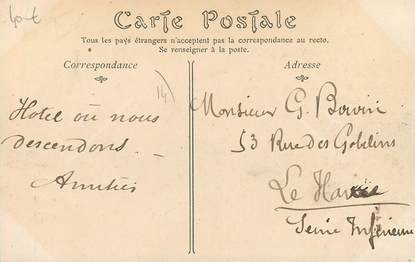 Carte Postale
Tous les pays étrangers n'acceptent pas la correspondance au recto.
Se renseigner à la poste.
Correspondance
Adresse
14)
Hotel où nous
descendons.
Amitiés
Monsieur G.
53 Rue des Gobelins
Le Havre
Seine Inférieure